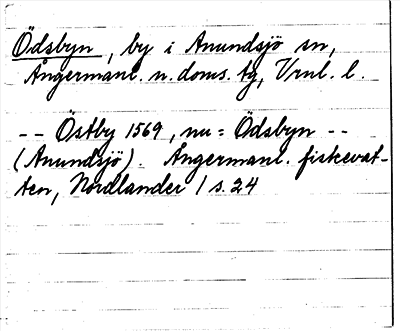 Ödsbyn, by i Anundsjö sn,
Ångermanl. n. doms. tg, Vrnl. l.
-- Östby 1569, nu = Ödsbyn --
(Anundsjö). Ångermanl. fiskevat-
ten, Nordlander / s. 24